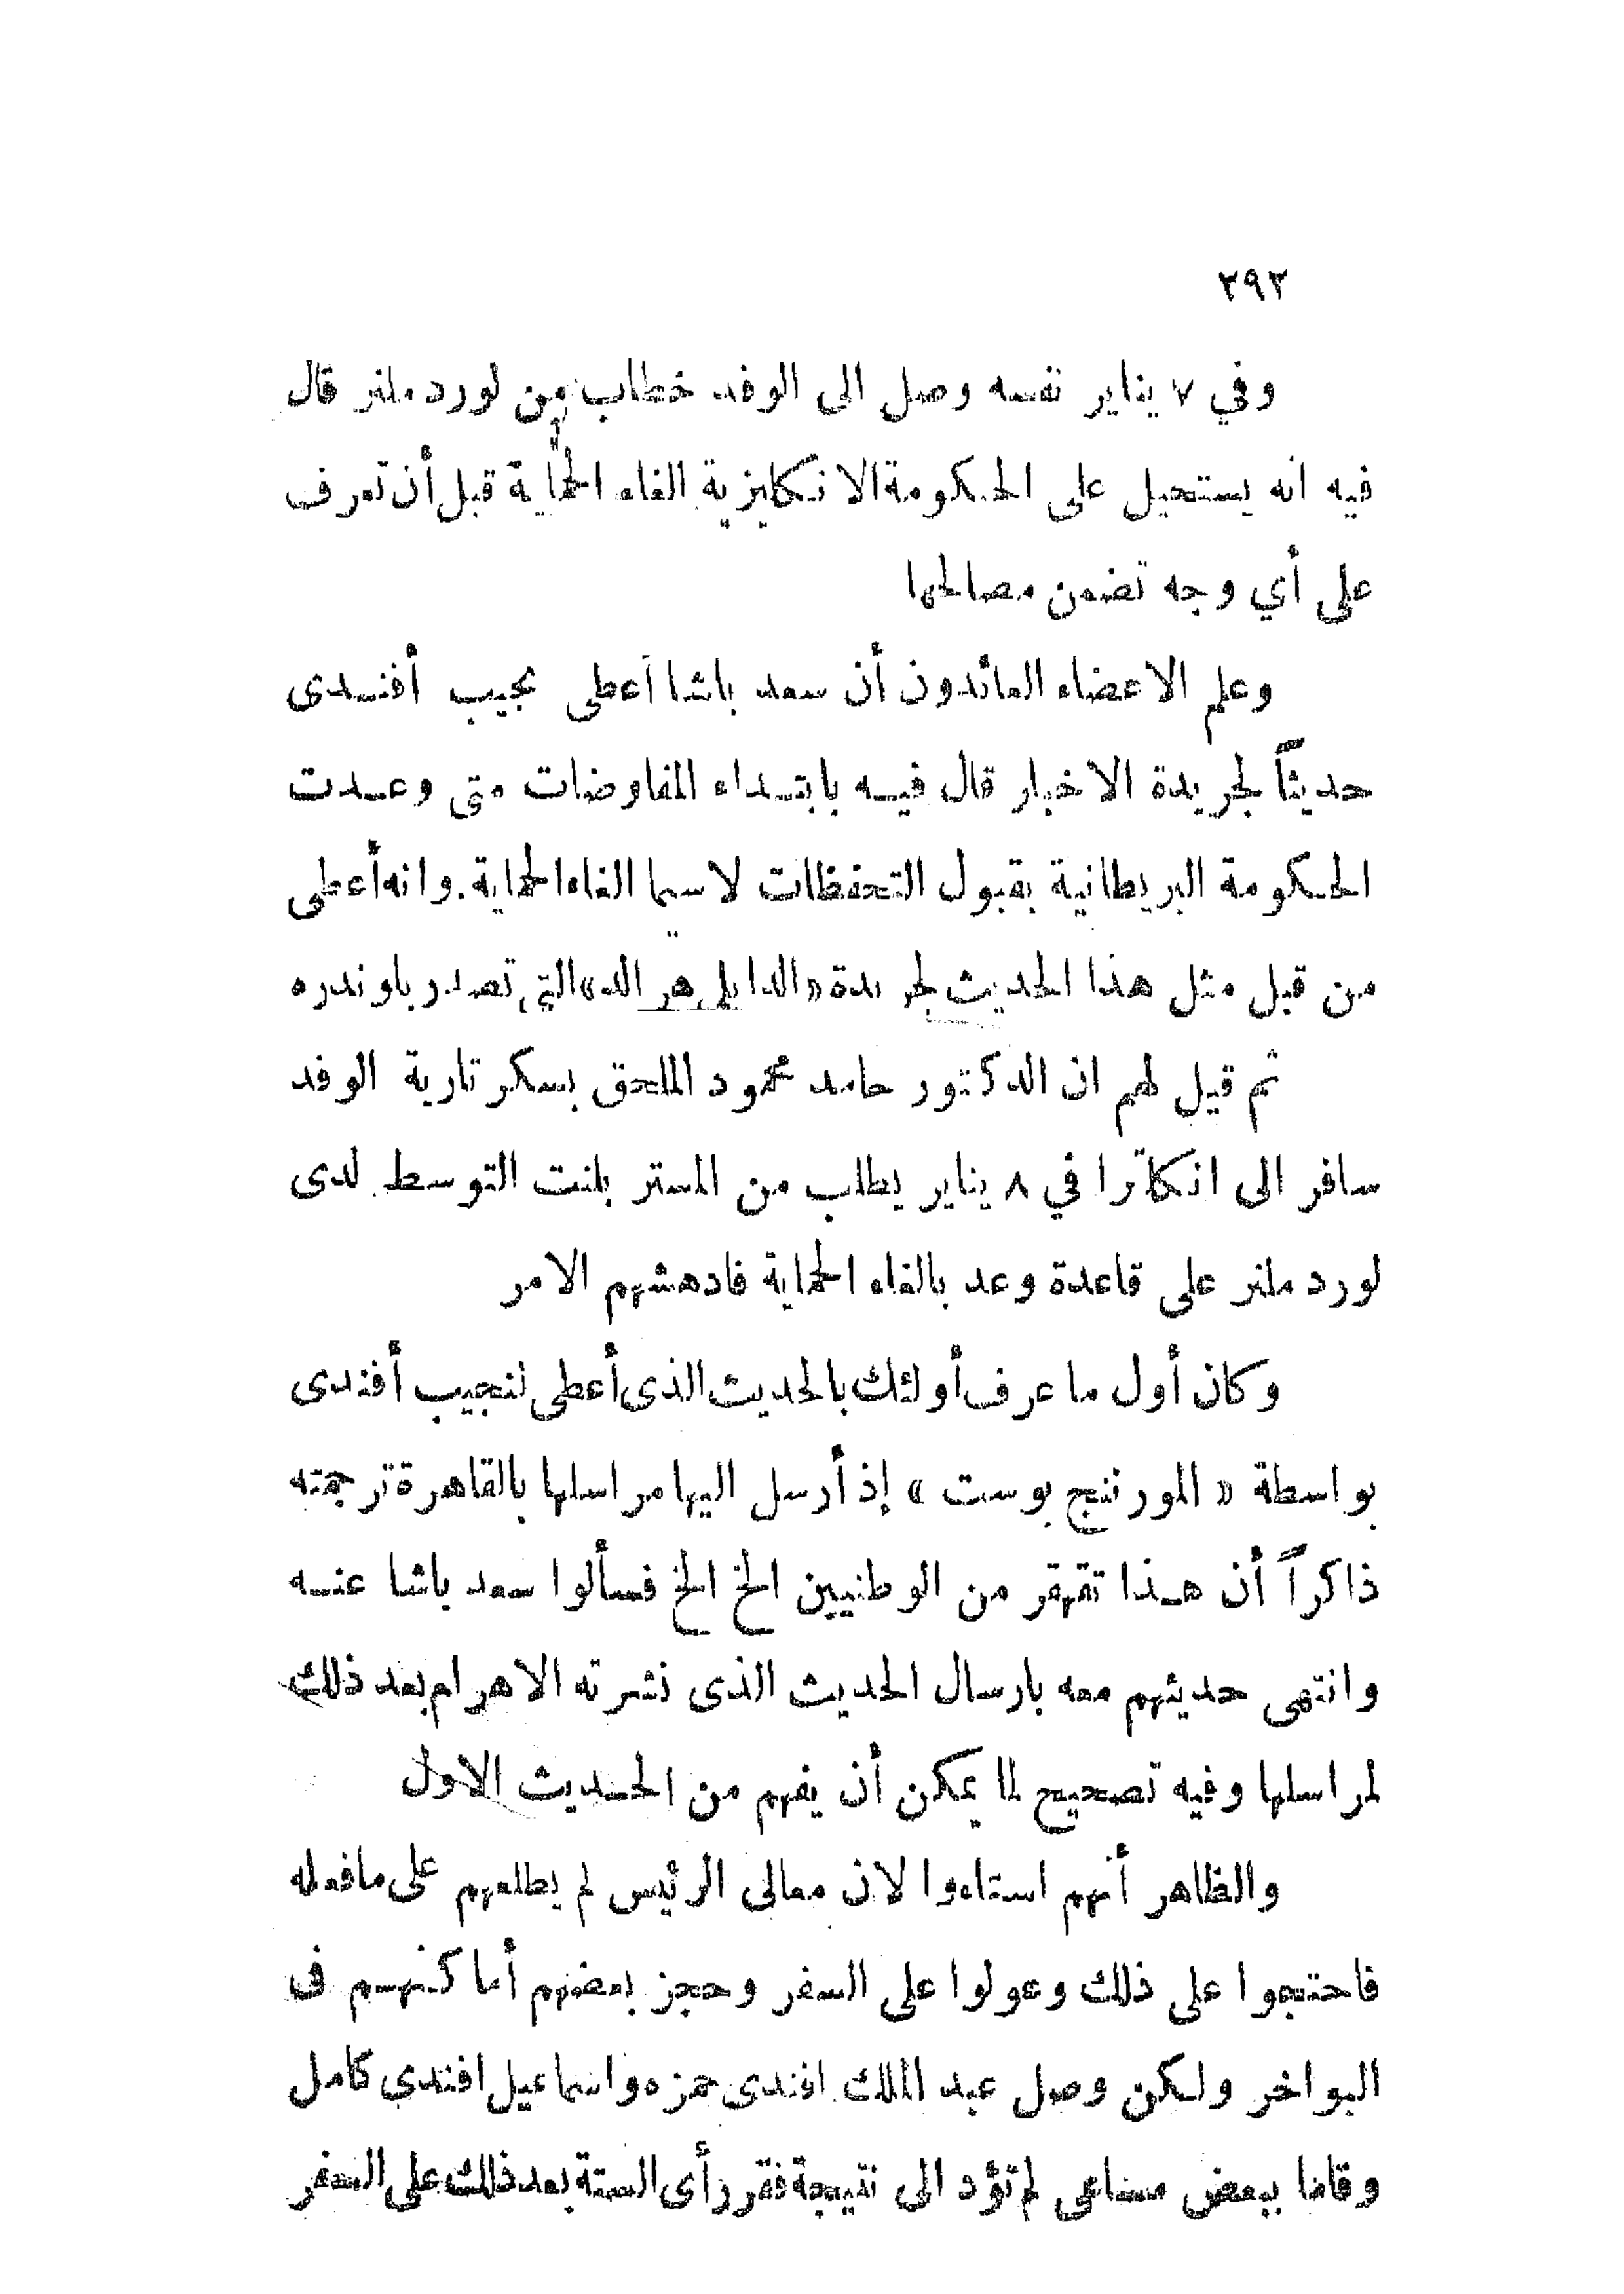 ٢٩٢
وفي ٧ يناير نفسه وصل الى الوفد خطاب من لورد ملنر قال
فيه انه يستحيل على الحكومة الانكليزية الغاء الحماية قبل أن تعرف
على أي وجه تضمن مصالحها
وعلم الاعضاء العائدون أن سعد باشا أعطى نجيب أفندى
حديثاً لجريدة الاخبار قال فيه بابتداء المفاوضات متى وعدت
الحكومة البريطانية بقبول التحفظات لاسيما الغاء الحماية. وانه أعطى
من قبل مثل هذا الحديث لجريدة «الدايلى هرالد» التي تصدر بلوندره
ثم قيل لهم ان الدكتور حامد محمود الملحق بسكرتارية الوفد
سافر الى انكلترا في ٨ يناير يطلب من المستر بلنت التوسط لدى
لورد ملنر على قاعدة وعد بالغاء الحماية فادهشهم الامر
وكان أول ما عرف أولئك بالحديث الذى أعطى لنجيب أفندى
بواسطة « المورننج بوست » إذ أرسل اليها مراسلها بالقاهرة ترجمته
ذاكراً أن هذا تقهقر من الوطنيين الخ الخ فسألوا سعد باشا عنه
وانتهى حديثهم معه بارسال الحديث الذى نشرته الاهرام بعد ذلك
لمراسلها وفيه تصحيح لما يمكن أن يفهم من الحديث الاول
والظاهر أنهم استاءوا لان معالى الرئيس لم يطلعهم على مافعله
فاحتجوا على ذلك وعولوا على السفر وحجز بعضهم أماكنهم فى
البواخر ولكن وصل عبد الملك افندى حمزه واسماعيل افندي كامل
وقاما ببعض مساعى لم تؤد الى نتيجة فقر رأى الستة بعد ذلك على السفر